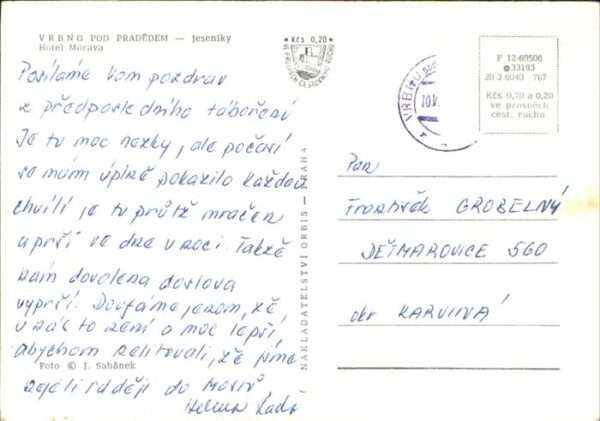 VRBNO POD PRADĚDEM — Jeseníky
Hotel Morava
Kčs 0,20
VE PROSPĚCH CESTOVNÍHO RUCHU
VRBNO POD
10.V.
F 12-60506
33193
20 3 6049 767
Kčs 0,70 a 0,20
ve prospěch
cest. ruchu
Posíláme Vám pozdrav
z předposledního táboření
Je tu moc hezky, ale počasí
se nám úplně pokazilo každou
chvíli je tu průtrž mračen
a prší ve dne v noci. Takže
nám dovolena doslova
vyprší. Doufáme jenom, že
u vás to není o moc lepší,
abychom nelitovali, že jsme
nejeli raději do
Helena
Pan
František GROBELNÝ
DĚTMAROVICE 560
okr KARVINÁ
NAKLADATELSTVÍ ORBIS — PRAHA
Foto © J. Sabánek